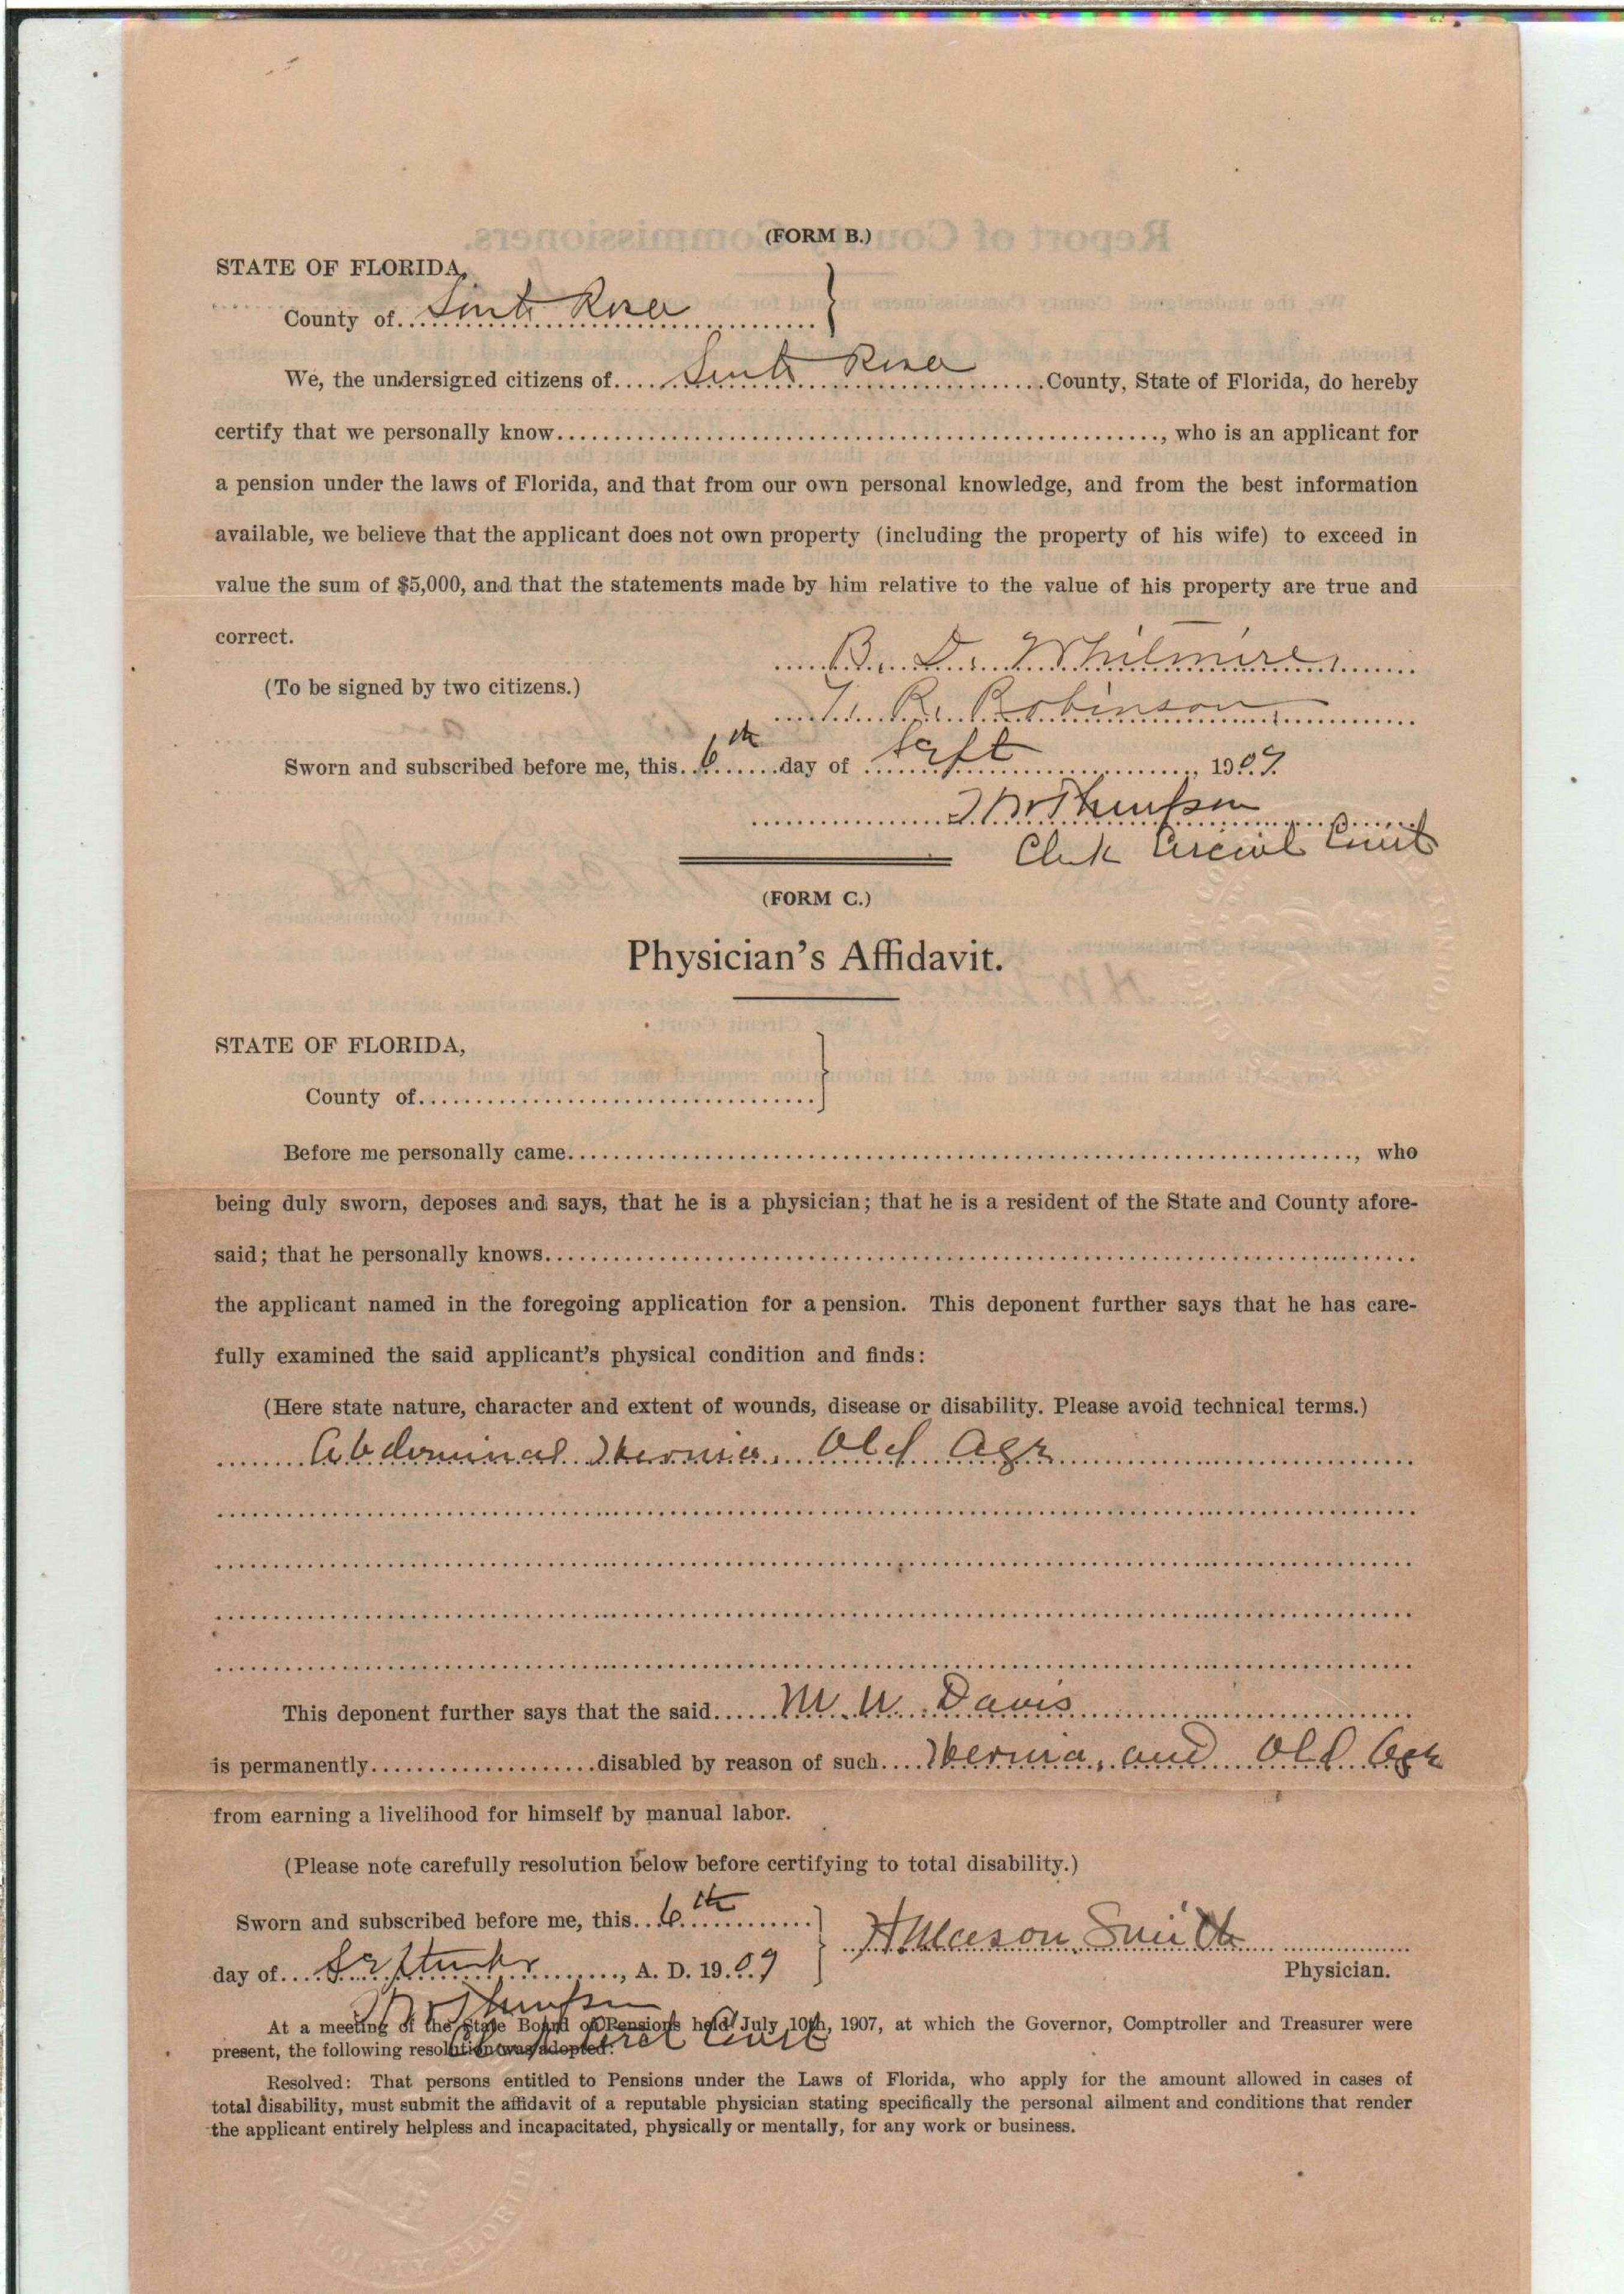 (FORM B.)
STATE OF FLORIDA,
County of Santa Rosa
We, the undersigned citizens of Santa Rosa County, State of Florida, do hereby
certify that we personally know........, who is an applicant for
a pension under the laws of Florida, and that from our own personal knowledge, and from the best information
available, we believe that the applicant does not own property (including the property of his wife) to exceed in
value the sum of $5,000, and that the statements made by him relative to the value of his property are true and
correct.
B. D. Whitmire
(To be signed by two citizens.)
R. Robinson
Sworn and subscribed before me, this 6th day of Sept, 1909
Thompson
Clerk Circuit Court
(FORM C.)
Physician's Affidavit.
STATE OF FLORIDA,
County of........
Before me personally came........, who
being duly sworn, deposes and says, that he is a physician; that he is a resident of the State and County afore-
said; that he personally knows........
the applicant named in the foregoing application for a pension. This deponent further says that he has care-
fully examined the said applicant's physical condition and finds:
(Here state nature, character and extent of wounds, disease or disability. Please avoid technical terms.)
Abdominal Hernia. Old Age
This deponent further says that the said M. W. Davis
is permanently........disabled by reason of such Hernia, and Old Age
from earning a livelihood for himself by manual labor.
(Please note carefully resolution below before certifying to total disability.)
Sworn and subscribed before me, this 6th
H Mason Smith
day of September, A. D. 1909
Physician.
Thompson
At a meeting of the State Board of Pensions held July 10th, 1907, at which the Governor, Comptroller and Treasurer were
Clerk Circt Court
present, the following resolution was adopted:
Resolved: That persons entitled to Pensions under the Laws of Florida, who apply for the amount allowed in cases of
total disability, must submit the affidavit of a reputable physician stating specifically the personal ailment and conditions that render
the applicant entirely helpless and incapacitated, physically or mentally, for any work or business.